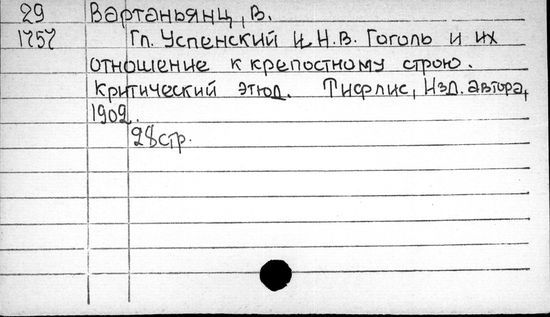 29 Вартаньянц, В.
1757 Гл. Успенский и Н.В. Гоголь и их
отношение к крепостному строю.
Критический этюд. Тифлис, Изд. автора,
1902.
28 стр.